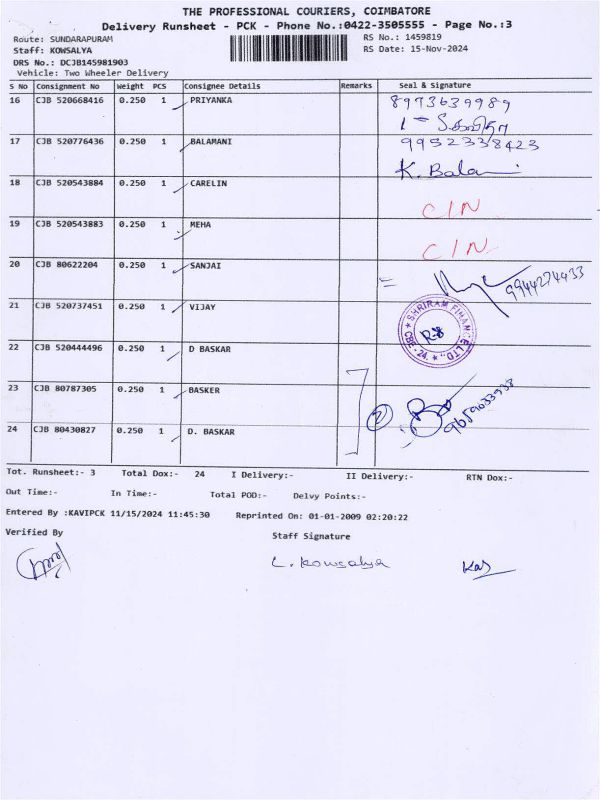 THE PROFESSIONAL COURIERS, COIMBATORE
Delivery Runsheet - PCK - Phone No.:0422-3505555 - Page No.:3
Route: SUNDARAPURAM
RS No.: 1459819
Staff: KOWSALYA
RS Date: 15-Nov-2024
DRS No.: DCJB145981903
Vehicle: Two Wheeler Delivery
S No Consignment No Weight PCS Consignee Details Remarks Seal & Signature
16 CJB 520668416 0.250 1 PRIYANKA 8973639989
17 CJB 520776436 0.250 1 BALAMANI 9952338423
K. Balamani
18 CJB 520543884 0.250 1 CARELIN C/N
19 CJB 520543883 0.250 1 MEHA C/N
20 CJB 80622204 0.250 1 SANJAI 9944274433
21 CJB 520737451 0.250 1 VIJAY
SHRIRAM FINANCE LTD. CBE - 24.
R-8
22 CJB 520444496 0.250 1 D BASKAR
23 CJB 80787305 0.250 1 BASKER
24 CJB 80430827 0.250 1 D. BASKAR
Tot. Runsheet:- 3 Total Dox:- 24 I Delivery:- II Delivery:- RTN Dox:-
Out Time:- In Time:- Total POD:- Delvy Points:-
Entered By :KAVIPCK 11/15/2024 11:45:30 Reprinted On: 01-01-2009 02:20:22
Verified By
Staff Signature
L. Kowsalya